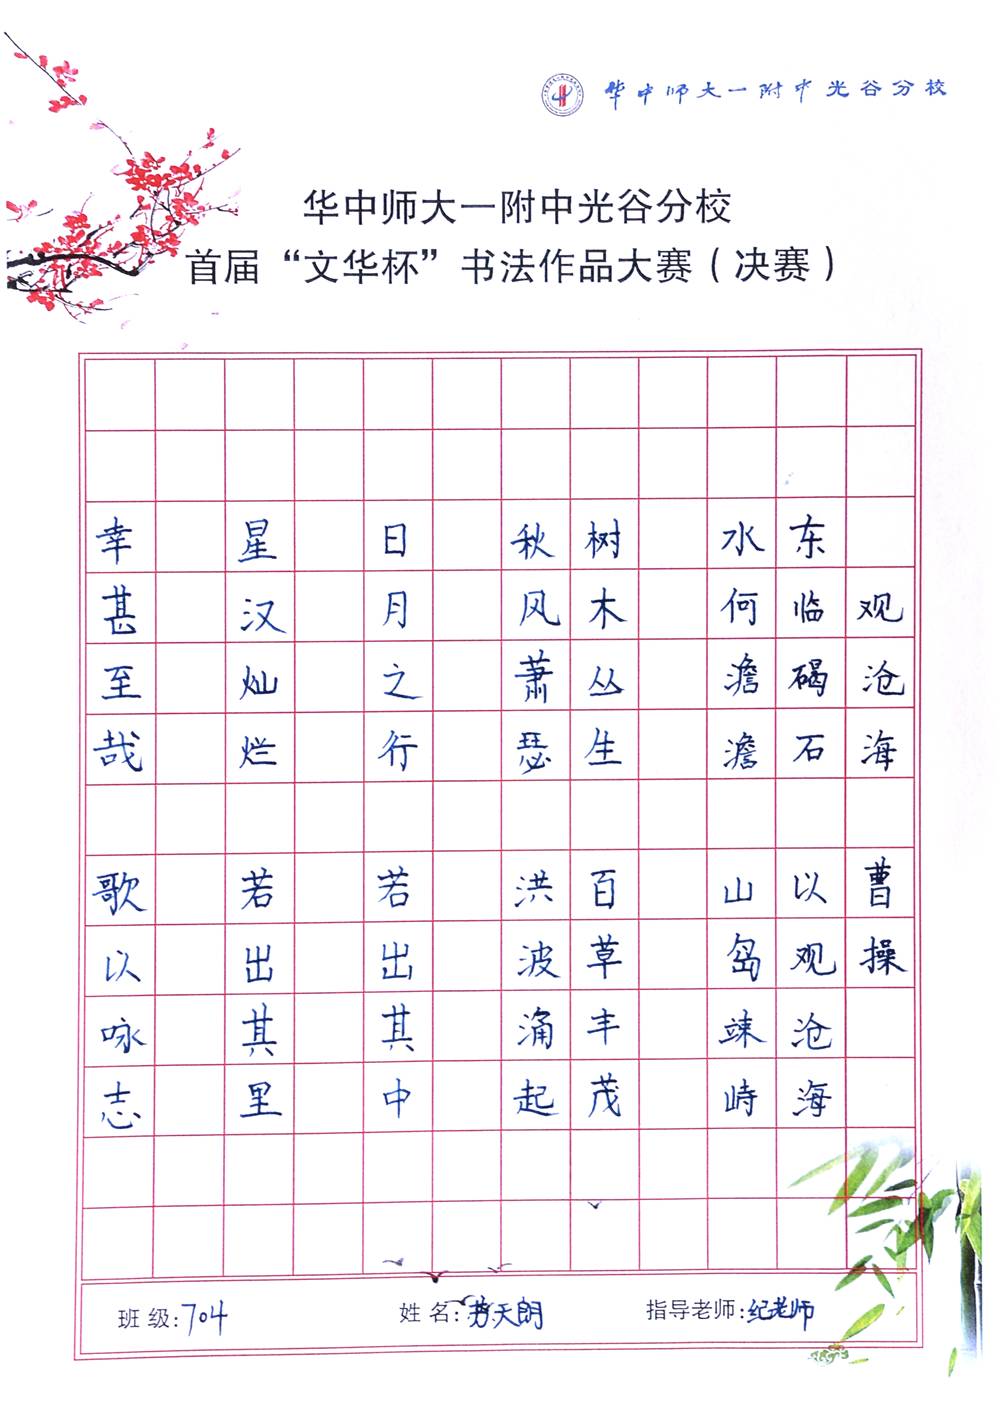 华中师大一附中光谷分校
华中师大一附中光谷分校
首届“文华杯”书法作品大赛（决赛）
观沧海 曹操
东临碣石 以观沧海
水何澹澹 山岛竦峙
树木丛生 百草丰茂
秋风萧瑟 洪波涌起
日月之行 若出其中
星汉灿烂 若出其里
幸甚至哉 歌以咏志
班级:704
姓名:劳天朗
指导老师:纪老师